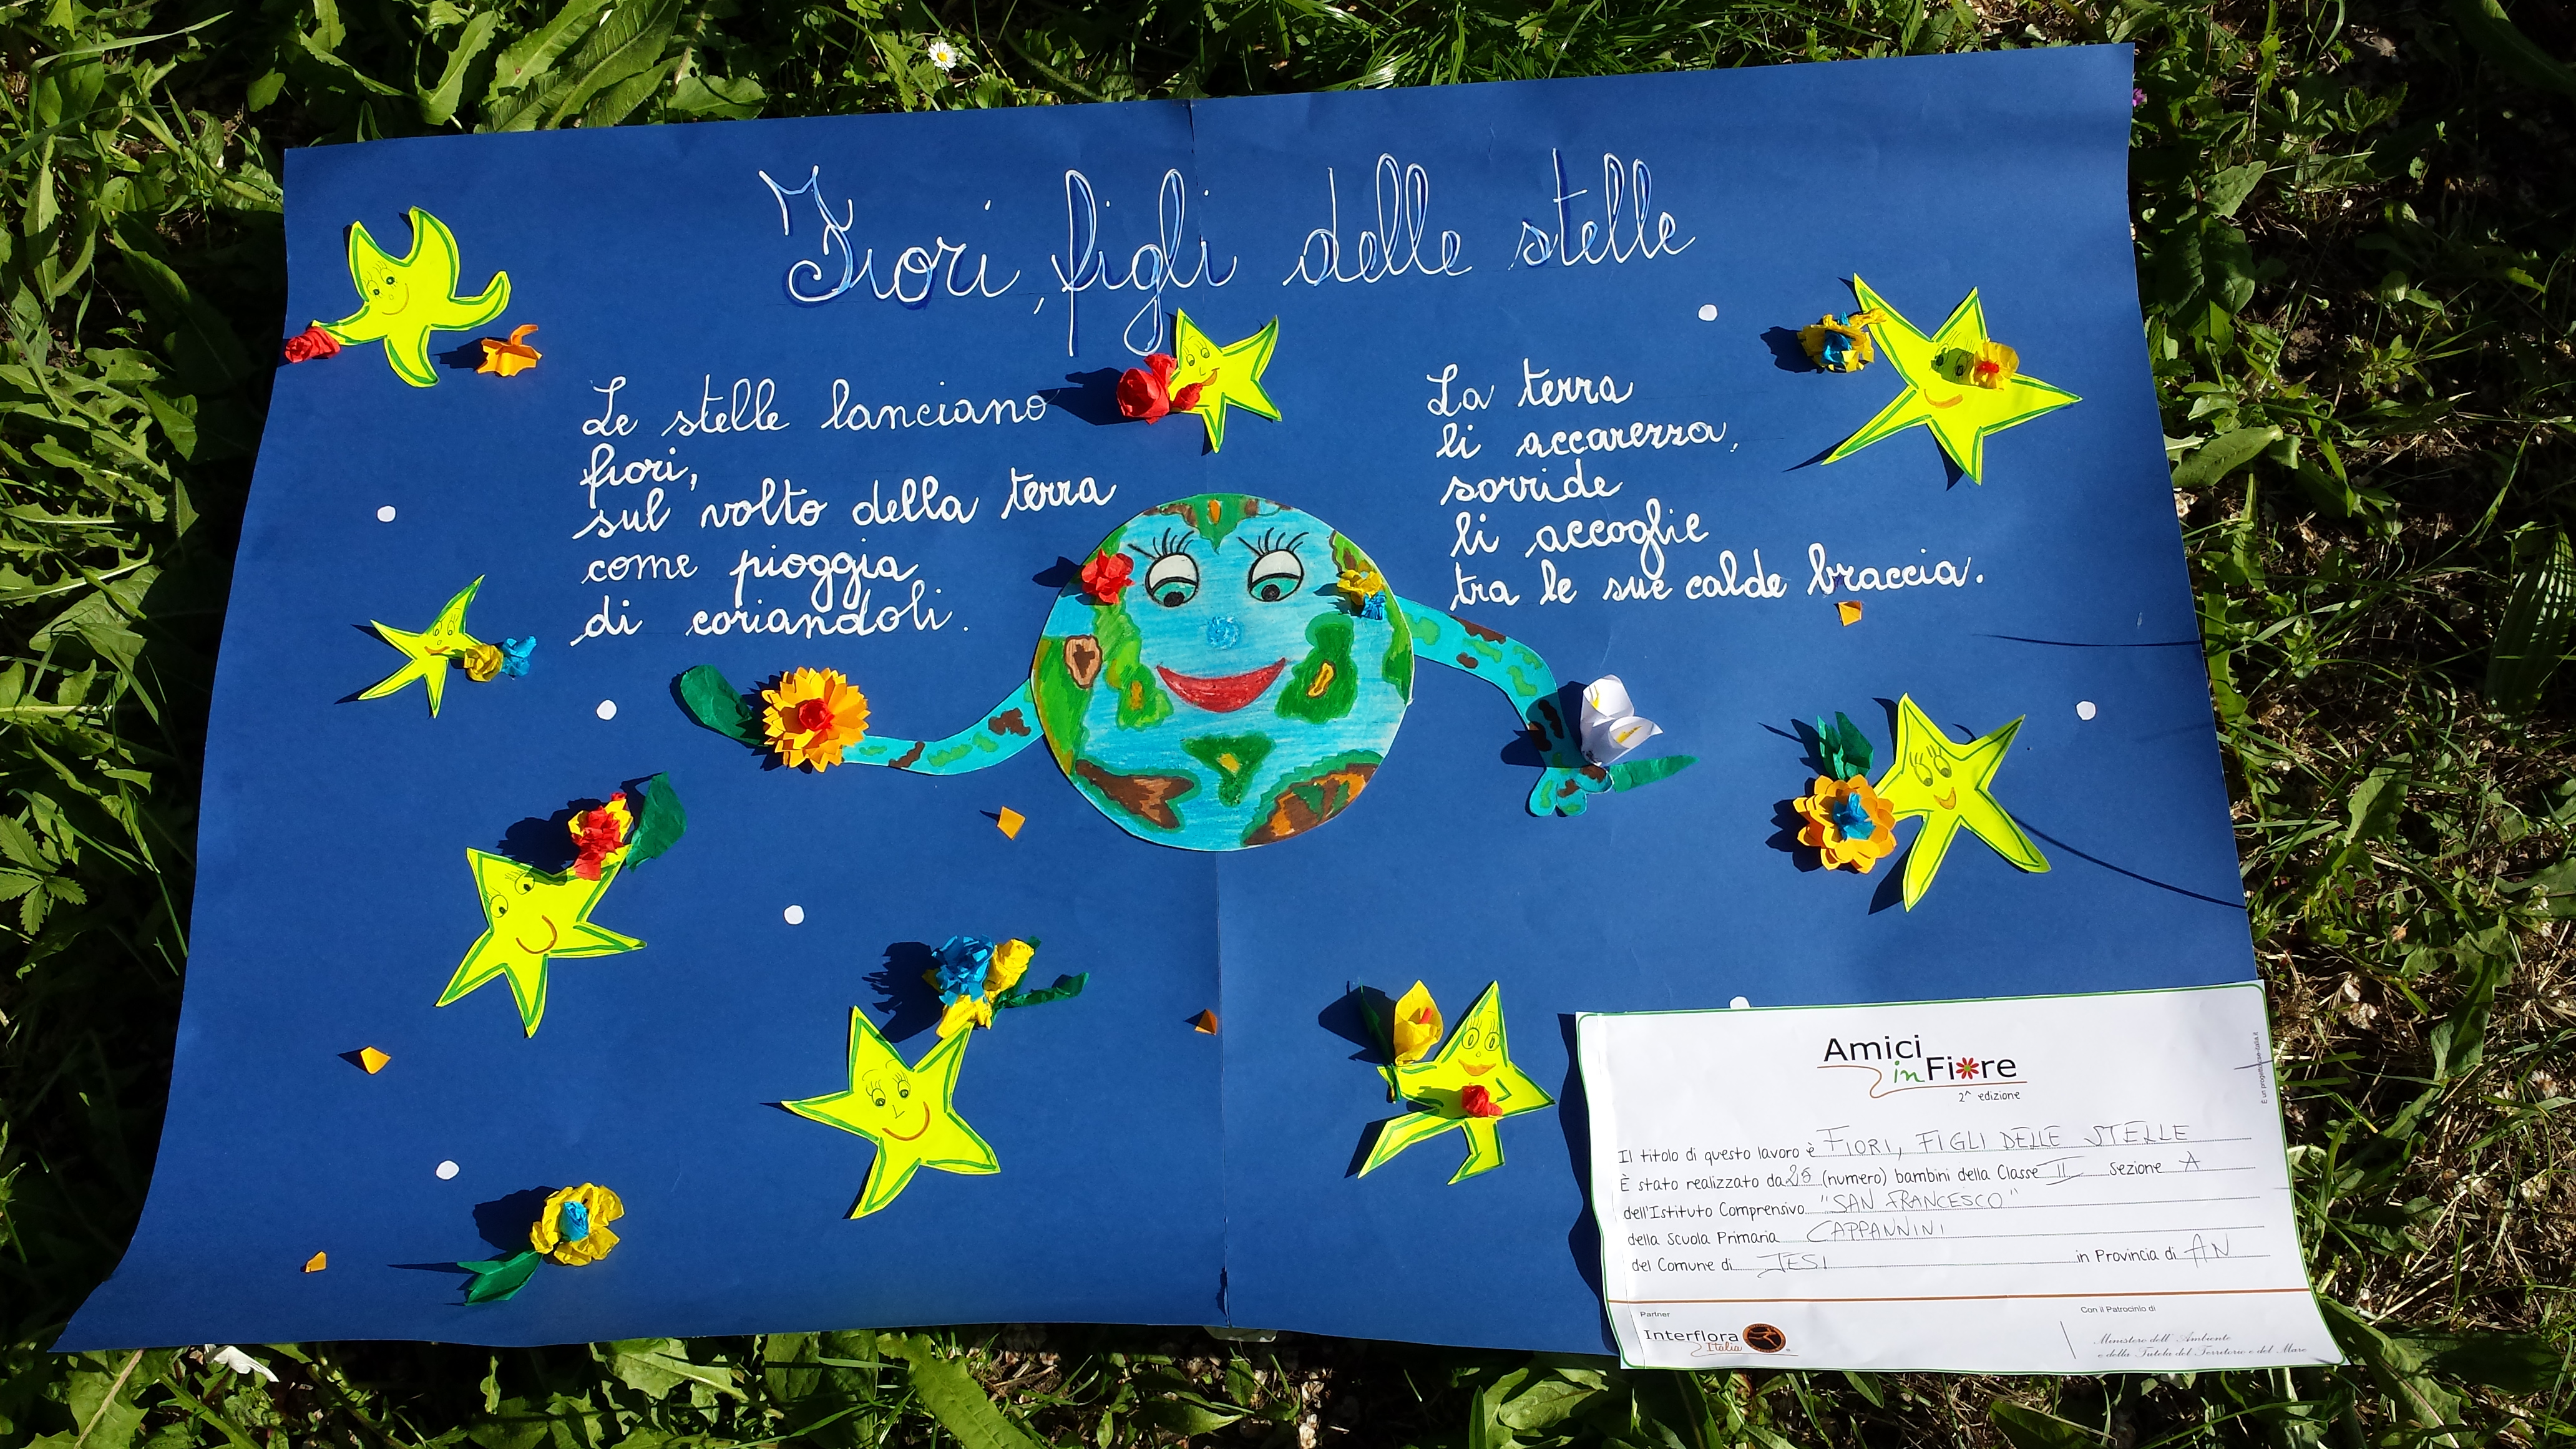 Fiori, figli delle stelle
Le stelle lanciano
fiori,
sul volto della terra
come pioggia
di coriandoli.
La terra
li accarezza,
sorride
li accoglie
tra le sue calde braccia.
Amici
in Fiore
2^ edizione
Il titolo di questo lavoro è FIORI, FIGLI DELLE STELLE
È stato realizzato da (numero) bambini della Classe II Sezione A
dell'Istituto Comprensivo "SAN FRANCESCO"
della Scuola Primaria CAPPANNINI
del Comune di JESI in Provincia di AN
Partner
Interflora
Italia
Con il Patrocinio di
Ministero dell'Ambiente
e della Tutela del Territorio e del Mare
È un progetto